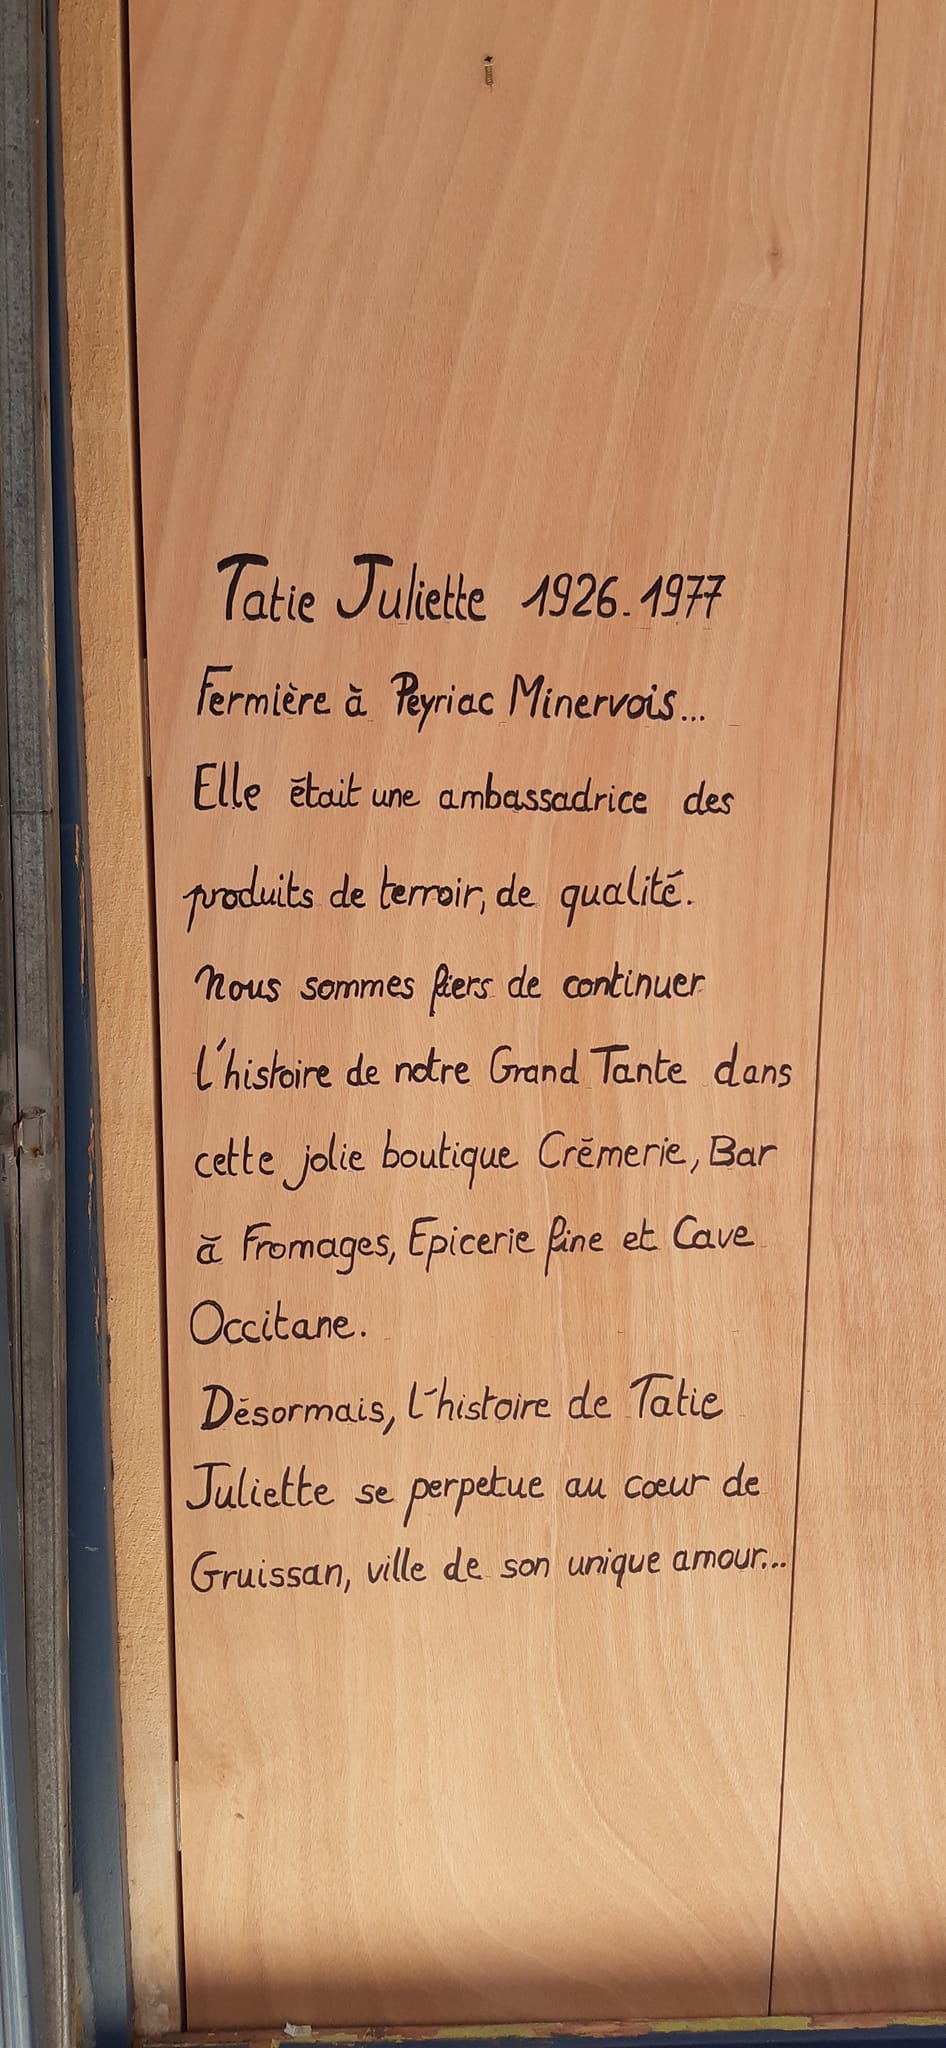 Tatie Juliette 1926-1977
Fermière à Peyriac Minervois...
Elle était une ambassadrice des
produits de terroir, de qualité.
Nous sommes fiers de continuer
l'histoire de notre Grand Tante dans
cette jolie boutique Crémerie, Bar
à Fromages, Epicerie fine et Cave
Occitane.
Désormais, l'histoire de Tatie
Juliette se perpetue au cœur de
Gruissan, ville de son unique amour...